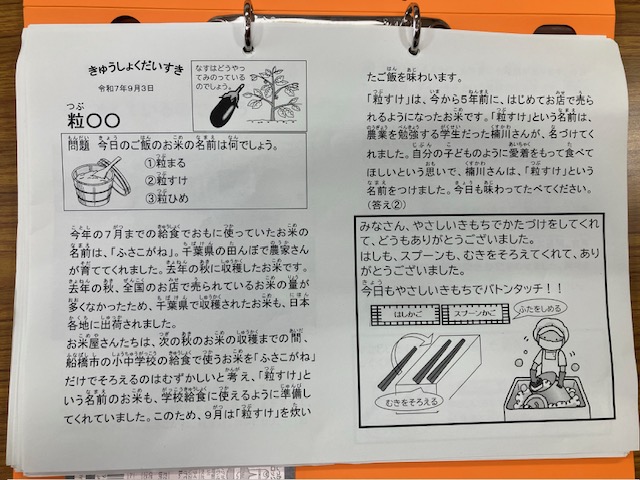 きゅうしょくだいすき
令和7年9月3日
なすはどうやっ
てみのっている
のでしょう。
粒〇〇
問題 今日のご飯のお米の名前は何でしょう。
①粒まる
②粒すけ
③粒ひめ
今年の7月までの給食でおもに使っていたお米の
名前は、「ふさこがね」。千葉県の田んぼで農家さん
が育ててくれました。去年の秋に収穫したお米です。
去年の秋、全国のお店で売られているお米の量が
多くなかったため、千葉県で収穫されたお米も、日本
各地に出荷されました。
お米屋さんたちは、次の秋のお米の収穫までの間、
船橋市の小中学校の給食で使うお米を「ふさこがね」
だけでそろえるのはむずかしいと考え、「粒すけ」と
いう名前のお米も、学校給食に使えるように準備し
てくれていました。このため、9月は「粒すけ」を炊い
たご飯を味わいます。
「粒すけ」は、今から5年前に、はじめてお店で売ら
れるようになったお米です。「粒すけ」という名前は、
農業を勉強する学生だった楠川さんが、名づけてく
れました。自分の子どものように愛着をもって食べて
ほしいという思いで、楠川さんは、「粒すけ」という
名前をつけました。今日も味わってたべてください。
(答え②)
みなさん、やさしいきもちでかたづけをしてくれ
て、どうもありがとうございました。
はしも、スプーンも、むきをそろえてくれて、あり
がとうございました。
今日もやさしいきもちでバトンタッチ!!
はしかご
スプーンかご
ふたをしめる
むきをそろえる